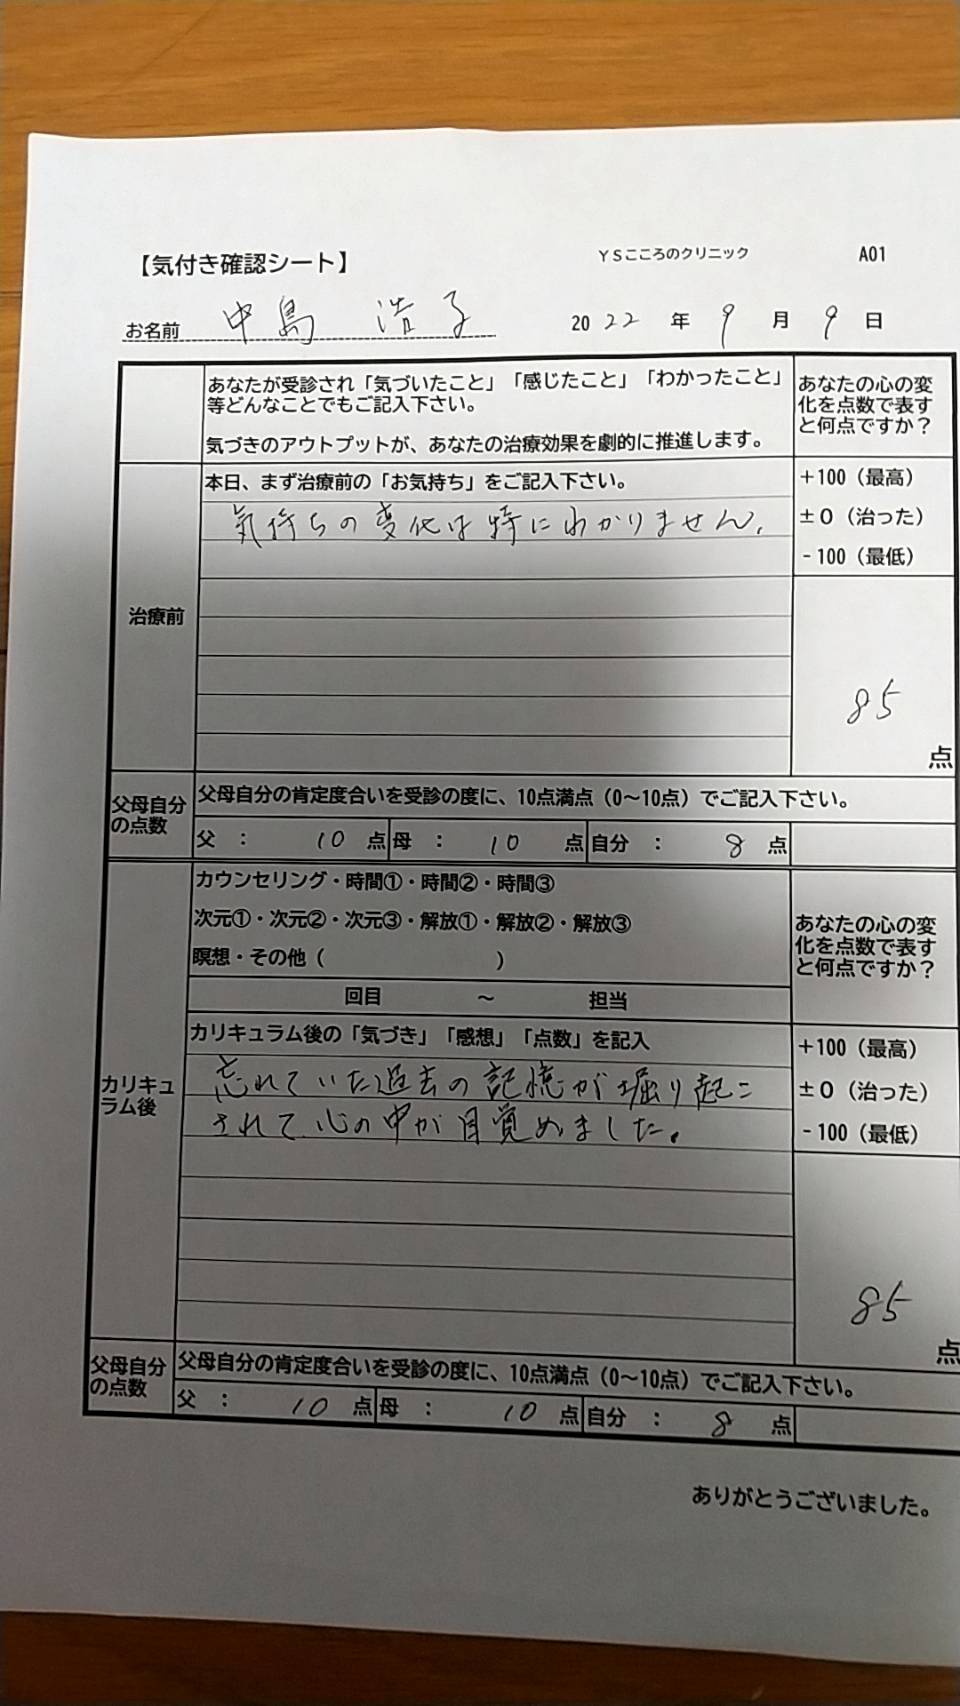 【気付き確認シート】
YSこころのクリニック
A01
お名前 中島 浩子
2022年 9月 9日
あなたが受診され「気づいたこと」「感じたこと」「わかったこと」
等どんなことでもご記入下さい。
気づきのアウトプットが、あなたの治療効果を劇的に推進します。
あなたの心の変
化を点数で表す
と何点ですか？
治療前
本日、まず治療前の「お気持ち」をご記入下さい。
気持ちの変化は特にわかりません。
+100（最高）
±0（治った）
-100（最低）
85
点
父母自分
の点数
父母自分の肯定度合いを受診の度に、10点満点（0～10点）でご記入下さい。
父 ： 10 点 母 ： 10 点 自分 ： 8 点
カリキュ
ラム後
カウンセリング・時間①・時間②・時間③
次元①・次元②・次元③・解放①・解放②・解放③
瞑想・その他（ ）
回目 ～ 担当
あなたの心の変
化を点数で表す
と何点ですか？
カリキュラム後の「気づき」「感想」「点数」を記入
忘れていた過去の記憶が堀り起こ
されて心の中が目覚めました。
+100（最高）
±0（治った）
-100（最低）
85
点
父母自分
の点数
父母自分の肯定度合いを受診の度に、10点満点（0～10点）でご記入下さい。
父 ： 10 点 母 ： 10 点 自分 ： 8 点
ありがとうございました。